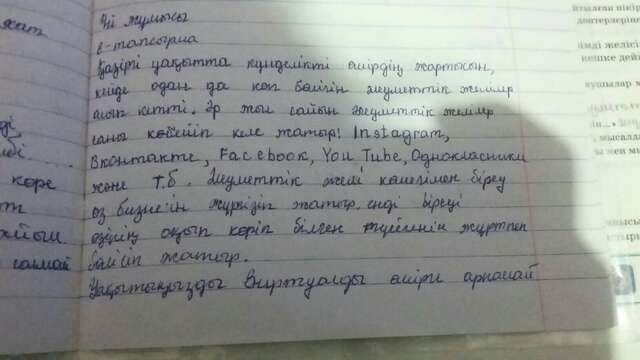 Үй жұмысы
6-тапсырма
Қазіргі уақытта күнделікті өмірдің жартысын,
кейде одан да көп бөлігін әлеуметтік желілер
алып кетті. Әр жыл сайын әлеуметтік желілер
саны көбейіп келе жатыр! Instagram,
Вконтакте, Facebook, You Tube, Однокласники
және т.б. Әлеуметтік желі көмегімен біреу
өз бизнесін жүргізіп жатыр, енді біреуі
өзінің оқып көріп білген түйгенін жұртпен
бөлісіп жатыр.
Уақытыңызды виртуалды өмірге арнамай
жат
ді,
ді...
көре
тп
айып
самай
ятылған пікір
дәптерлеріңе
імді желіс
кешке дей
қушылар